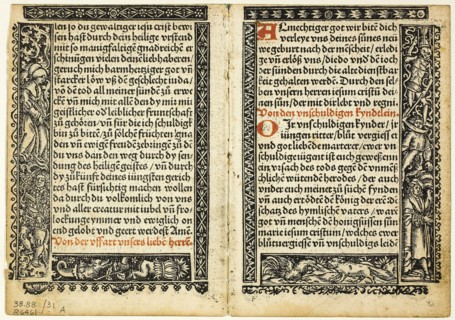 len so du gewaltiger iesu crist bewi
sen hast durch dein heilige vrstend
mit so manigfaltigē gnadreichē er
schinungen vielen deinē liebhaberen/
gerich mich barmhertziger got vn̄
starcker löw vß dē geschlecht iuda/
vō dē tod all meiner sünde zů erwe
ckē vn̄ mich mit allē den dy mir mit
geistlicher oď leiblicher fruntschafft
zů gehörē/ vn̄ für die ich schuldigk
bin zů bittē/ zů sölche früchten gna
den vn̄ ewigē freudē zebringē zů dē
du vns dan den weg durch dy sen-
dung des heilige geistes/ vn̄ durch
dy zůkunfft deines iungsten gerich
tes hast fürsichtig machen wollen
da durch du volkomlich von vns
vnd aller creatur mit iubel vn̄ fro-
lockung ymmer vnd ewiglich on
end gelobt vnd geert werdest Amē
Von der vffart vnsers liebē herrē
Almechtiger got wir bitē dich
verleye vns deines sünes new
we geburt nach der mēscheit/ erledi
ge vn̄ erlöß vns/ die do vnď dē ioch
der sünden durch die alte dinstbar
keit gehalten werdē Durch den sel-
ben vnsern herren iesum cristū dei
nen sün/ der mit dir lebt vnd regni.
Von den vnschuldigen kyndlein
O Ir vnschuldigen kynder/ ir
iungen ritter/ blüt vergiesser
vnd got liebē de marterer/ ewer vn
schuldige iugent ist euch gewesenn
ein vrsach des tods gegē dē vnmēn
schlichē wütendē herodes/ der auch
vnder euch meinet zů süchē fynden
vn̄ auch ertödtē dē könig der erē dē
schatz des hymlischē vaters/ war
got vn̄ mensch dē honigsüssen sün
marie iesum cristum/ welches ewer
blütuergiessē vn̄ vnschuldigs leidē
38.88 /31
R6461 A